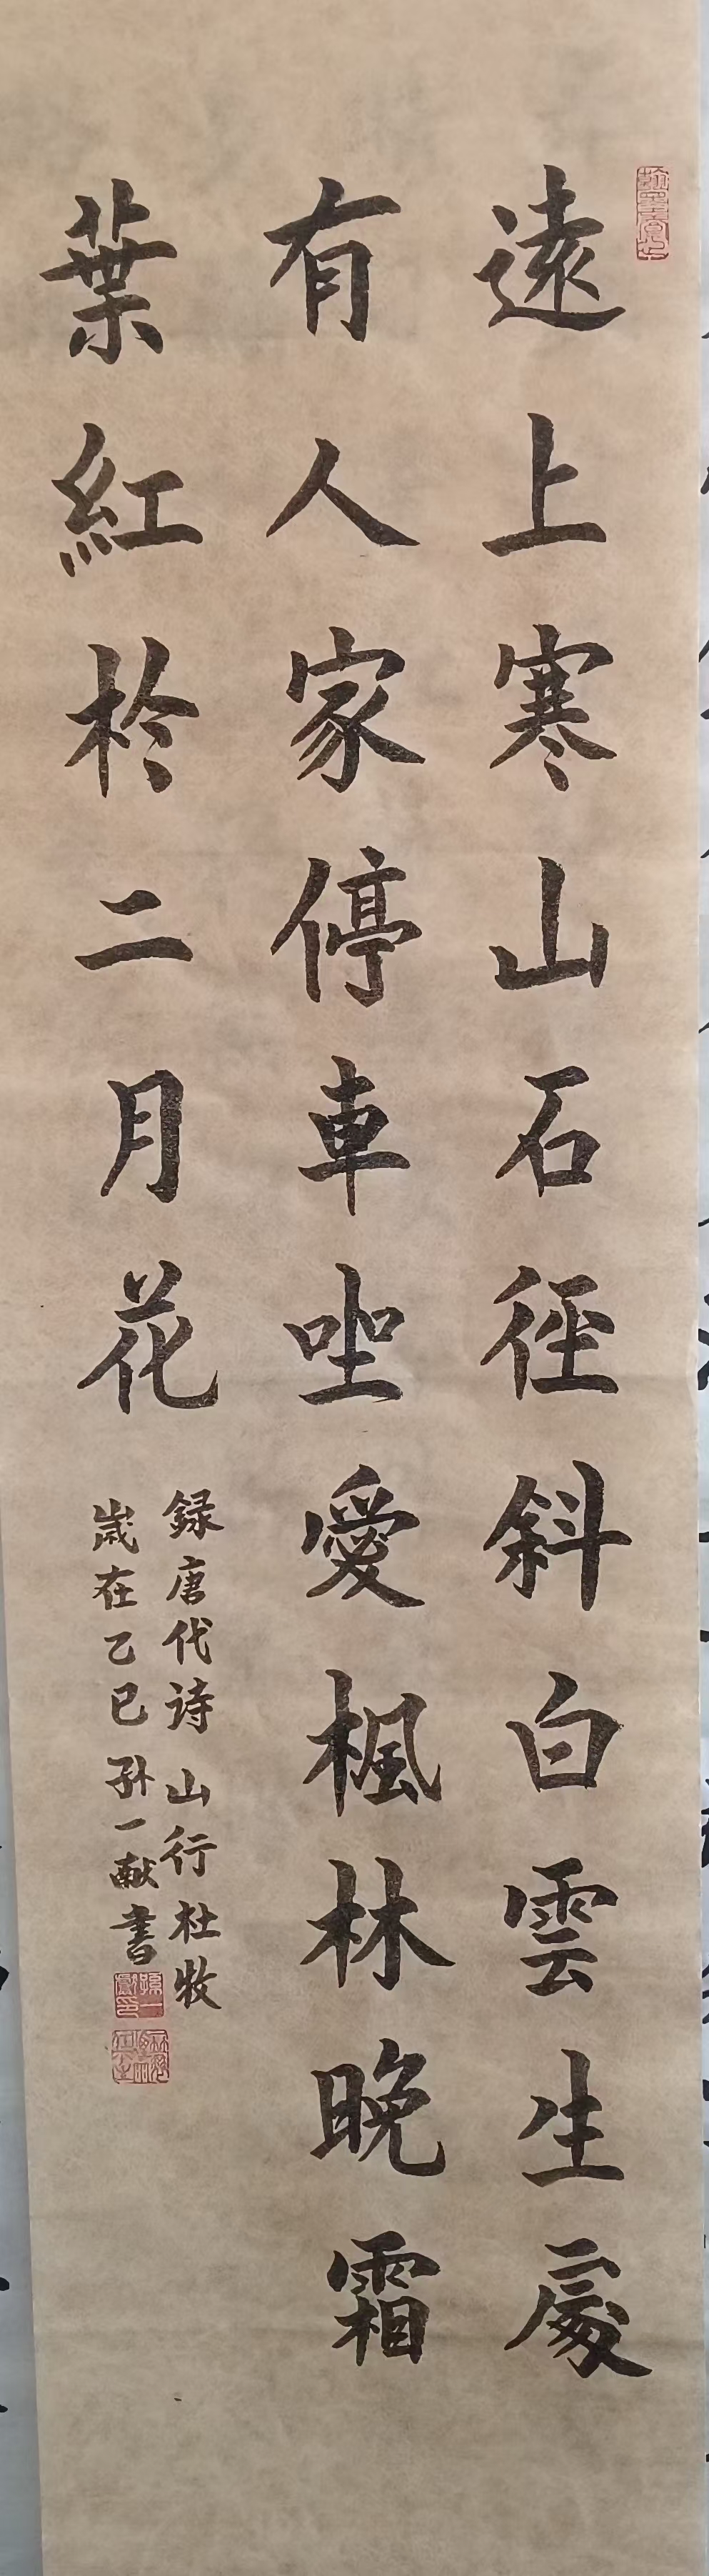 遠上寒山石徑斜白雲生處
有人家停車坐愛楓林晚霜
葉紅於二月花
録唐代诗 山行杜牧
歲在乙巳 孙一献書